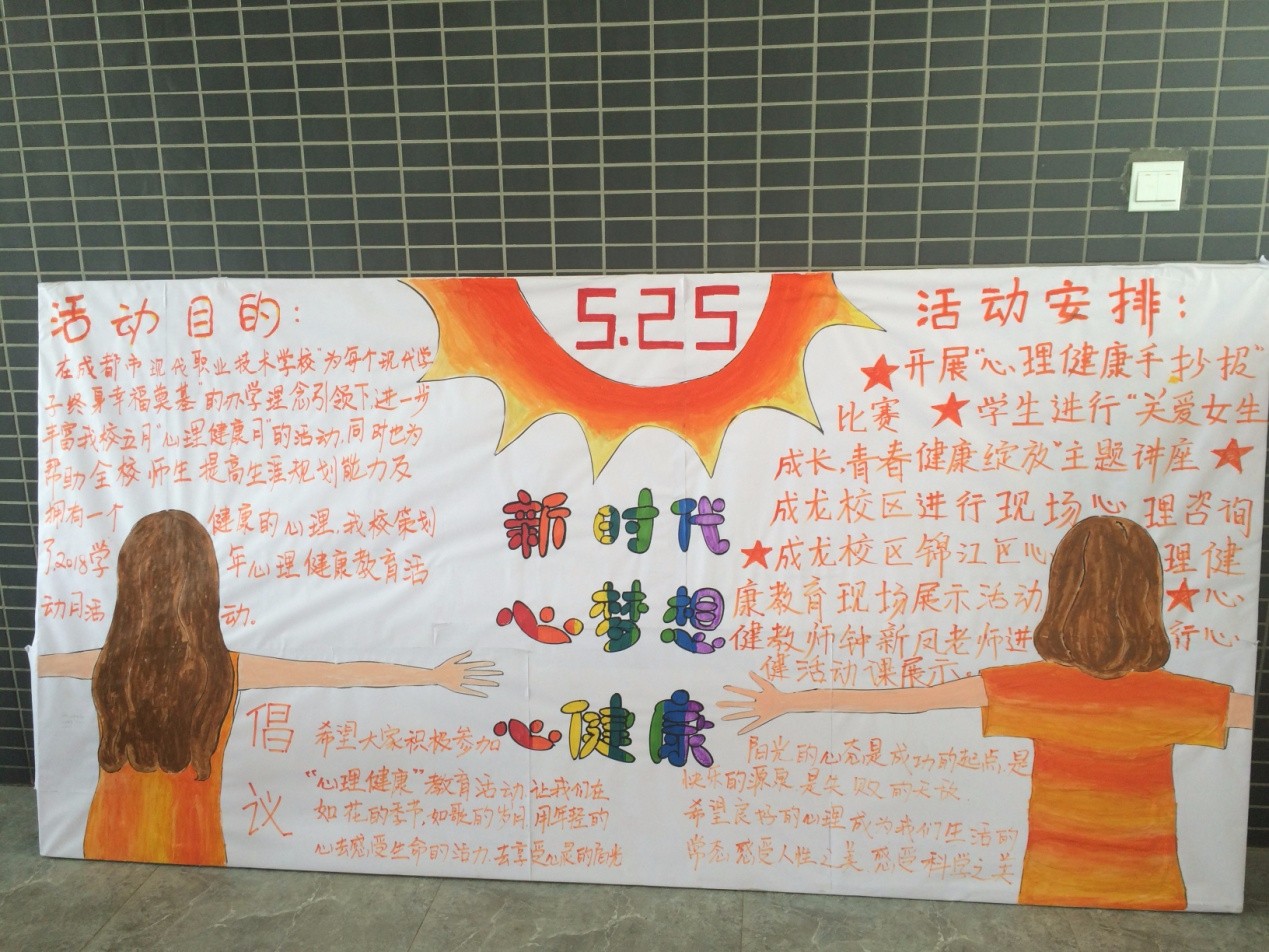 5.25
活动目的:
在成都市现代职业技术学校"为每个现代学
子终身幸福奠基"的办学理念引领下,进一步
丰富我校五月"心理健康月"的活动,同时也为
帮助全校师生提高生涯规划能力及
拥有一个健康的心理,我校策划
了2018学年心理健康教育活
动月活动。
新时代
心梦想
心健康
活动安排:
★开展"心理健康手抄报"
比赛 ★学生进行"关爱女生
成长,青春健康绽放"主题讲座★
成龙校区进行现场心理咨询
★成龙校区锦江区心理健
康教育现场展示活动★心
健教师钟新凤老师进行心
健活动课展示..
倡议
希望大家积极参加
"心理健康"教育活动,让我们在
如花的季节,如歌的岁月,用年轻的
心去感受生命的活力,去享受心灵的
阳光的心态是成功的起点,是
快乐的源泉是失败的天敌
希望良好的心理成为我们生活的
常态感受人性之美感受科学之美